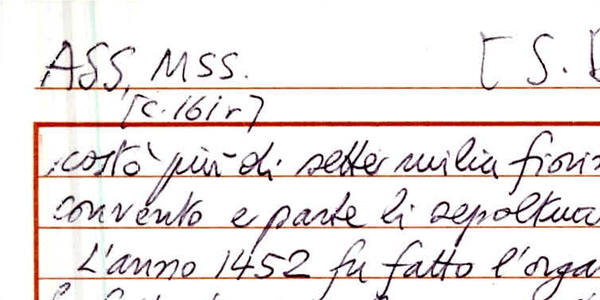 ASS, MSS. [S.
[c. 161r]
costò più di sette milia fiorin
convento e parte li sepoltua
L'anno 1452 fu fatto l'orga